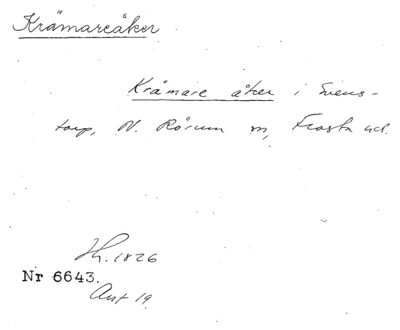 Krämareåker
Krämare åker i Svens-
torp, N. Rörum sn, Frosta hd.
Lh. 1826
Nr 6643.
Akt 19